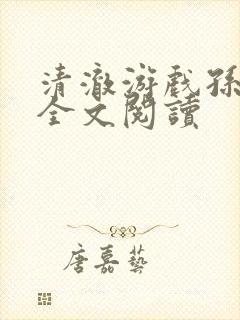 清澈游戏孙
全文閱讀
唐嘉藝